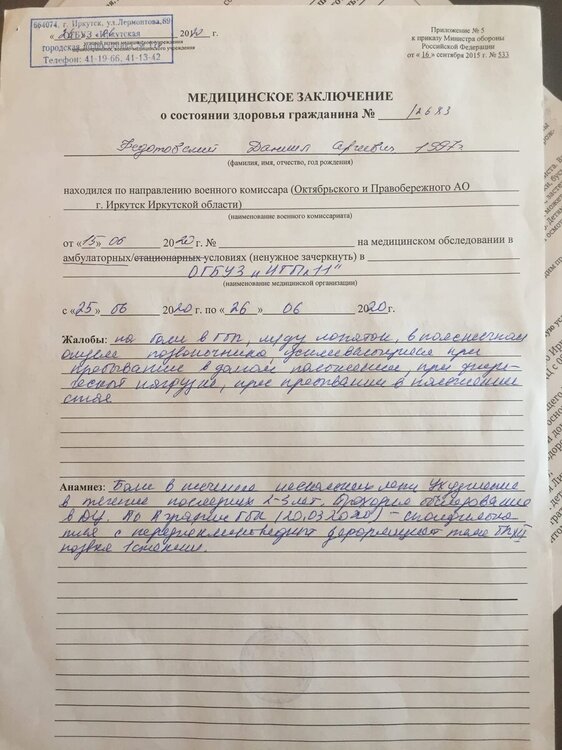 664074, г. Иркутск, ул.Лермонтова,89
ОГБУЗ «Иркутская
городская
Телефоны: 41-19-66, 41-13-42
2020 г.
Приложение № 5
к приказу Министра обороны
Российской Федерации
от « 16 » сентября 2015 г. № 533
МЕДИЦИНСКОЕ ЗАКЛЮЧЕНИЕ
о состоянии здоровья гражданина № /2683
Даниил 1997г
(фамилия, имя, отчество, год рождения)
находился по направлению военного комиссара (Октябрьского и Правобережного АО
г. Иркутск Иркутской области)
(наименование военного комиссариата)
от «15» 06 2020 г. № на медицинском обследовании в
амбулаторных/стационарных условиях (ненужное зачеркнуть) в
ОГБУЗ "ИГП 11"
(наименование медицинской организации)
с «25 » 06 2020 г. по « 26 » 06 2020 г.
Жалобы: на боли в ГОП, между лопаток, в поясничном
отделе позвоночника, усиливающиеся при
пребывание в одном положении, при физи-
ческой нагрузке, при пребывании в положении
стоя.
Анамнез: Боли в течение нескольких лет. Ухудшение
в течение последних 2-3 лет. Проходил обследование
в (20.03.2020) -
с деформацией тела
1 степени.